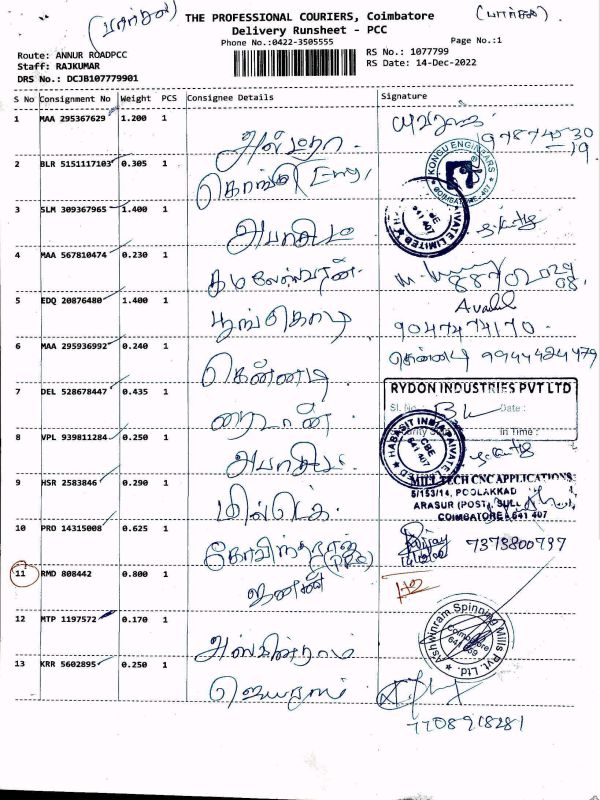 THE PROFESSIONAL COURIERS, Coimbatore
Delivery Runsheet - PCC
Phone No.:0422-3505555
Page No.:1
Route: ANNUR ROADPCC
Staff: RAJKUMAR
DRS No.: DCJB107779901
RS No.: 1077799
RS Date: 14-Dec-2022
S No Consignment No Weight PCS Consignee Details Signature
1 MAA 295367629 1.200 1
2 BLR 5151117103 0.305 1 கொங்கு Eng,
KONGU ENGINEERS
3 SLM 309367965 1.400 1
4 MAA 567810474 0.230 1 கமலேஸ்வரன்
5 EDQ 20876480 1.400 1 பூங்கொடி
9047474170
6 MAA 295936992 0.240 1 கென்னடி கென்னடி 9944424479
7 DEL 528678447 0.435 1 ரைடான்
RYDON INDUSTRIES PVT LTD
Sl. No. Date :
In Time :
8 VPL 939811284 0.250 1
HABASIT INDIA PRIVATE LIMITED
CBE
641 407
9 HSR 2583846 0.290 1 மில்டெக்
MILL TECH CNC APPLICATIONS
5/153/14, POOLAKKAD
ARASUR (POST), SULL
COIMBATORE - 641 407
10 PRO 14315008 0.625 1 கோவிந்தராஜ்
7373800797
11 RMD 808442 0.800 1
12 MTP 1197572 0.170 1 அஸ்வின்ராம்
Ashwinram Spinning Mills Pvt. Ltd.
Coimbatore
13 KRR 5602895 0.250 1 ஜெயராம்
7708918281